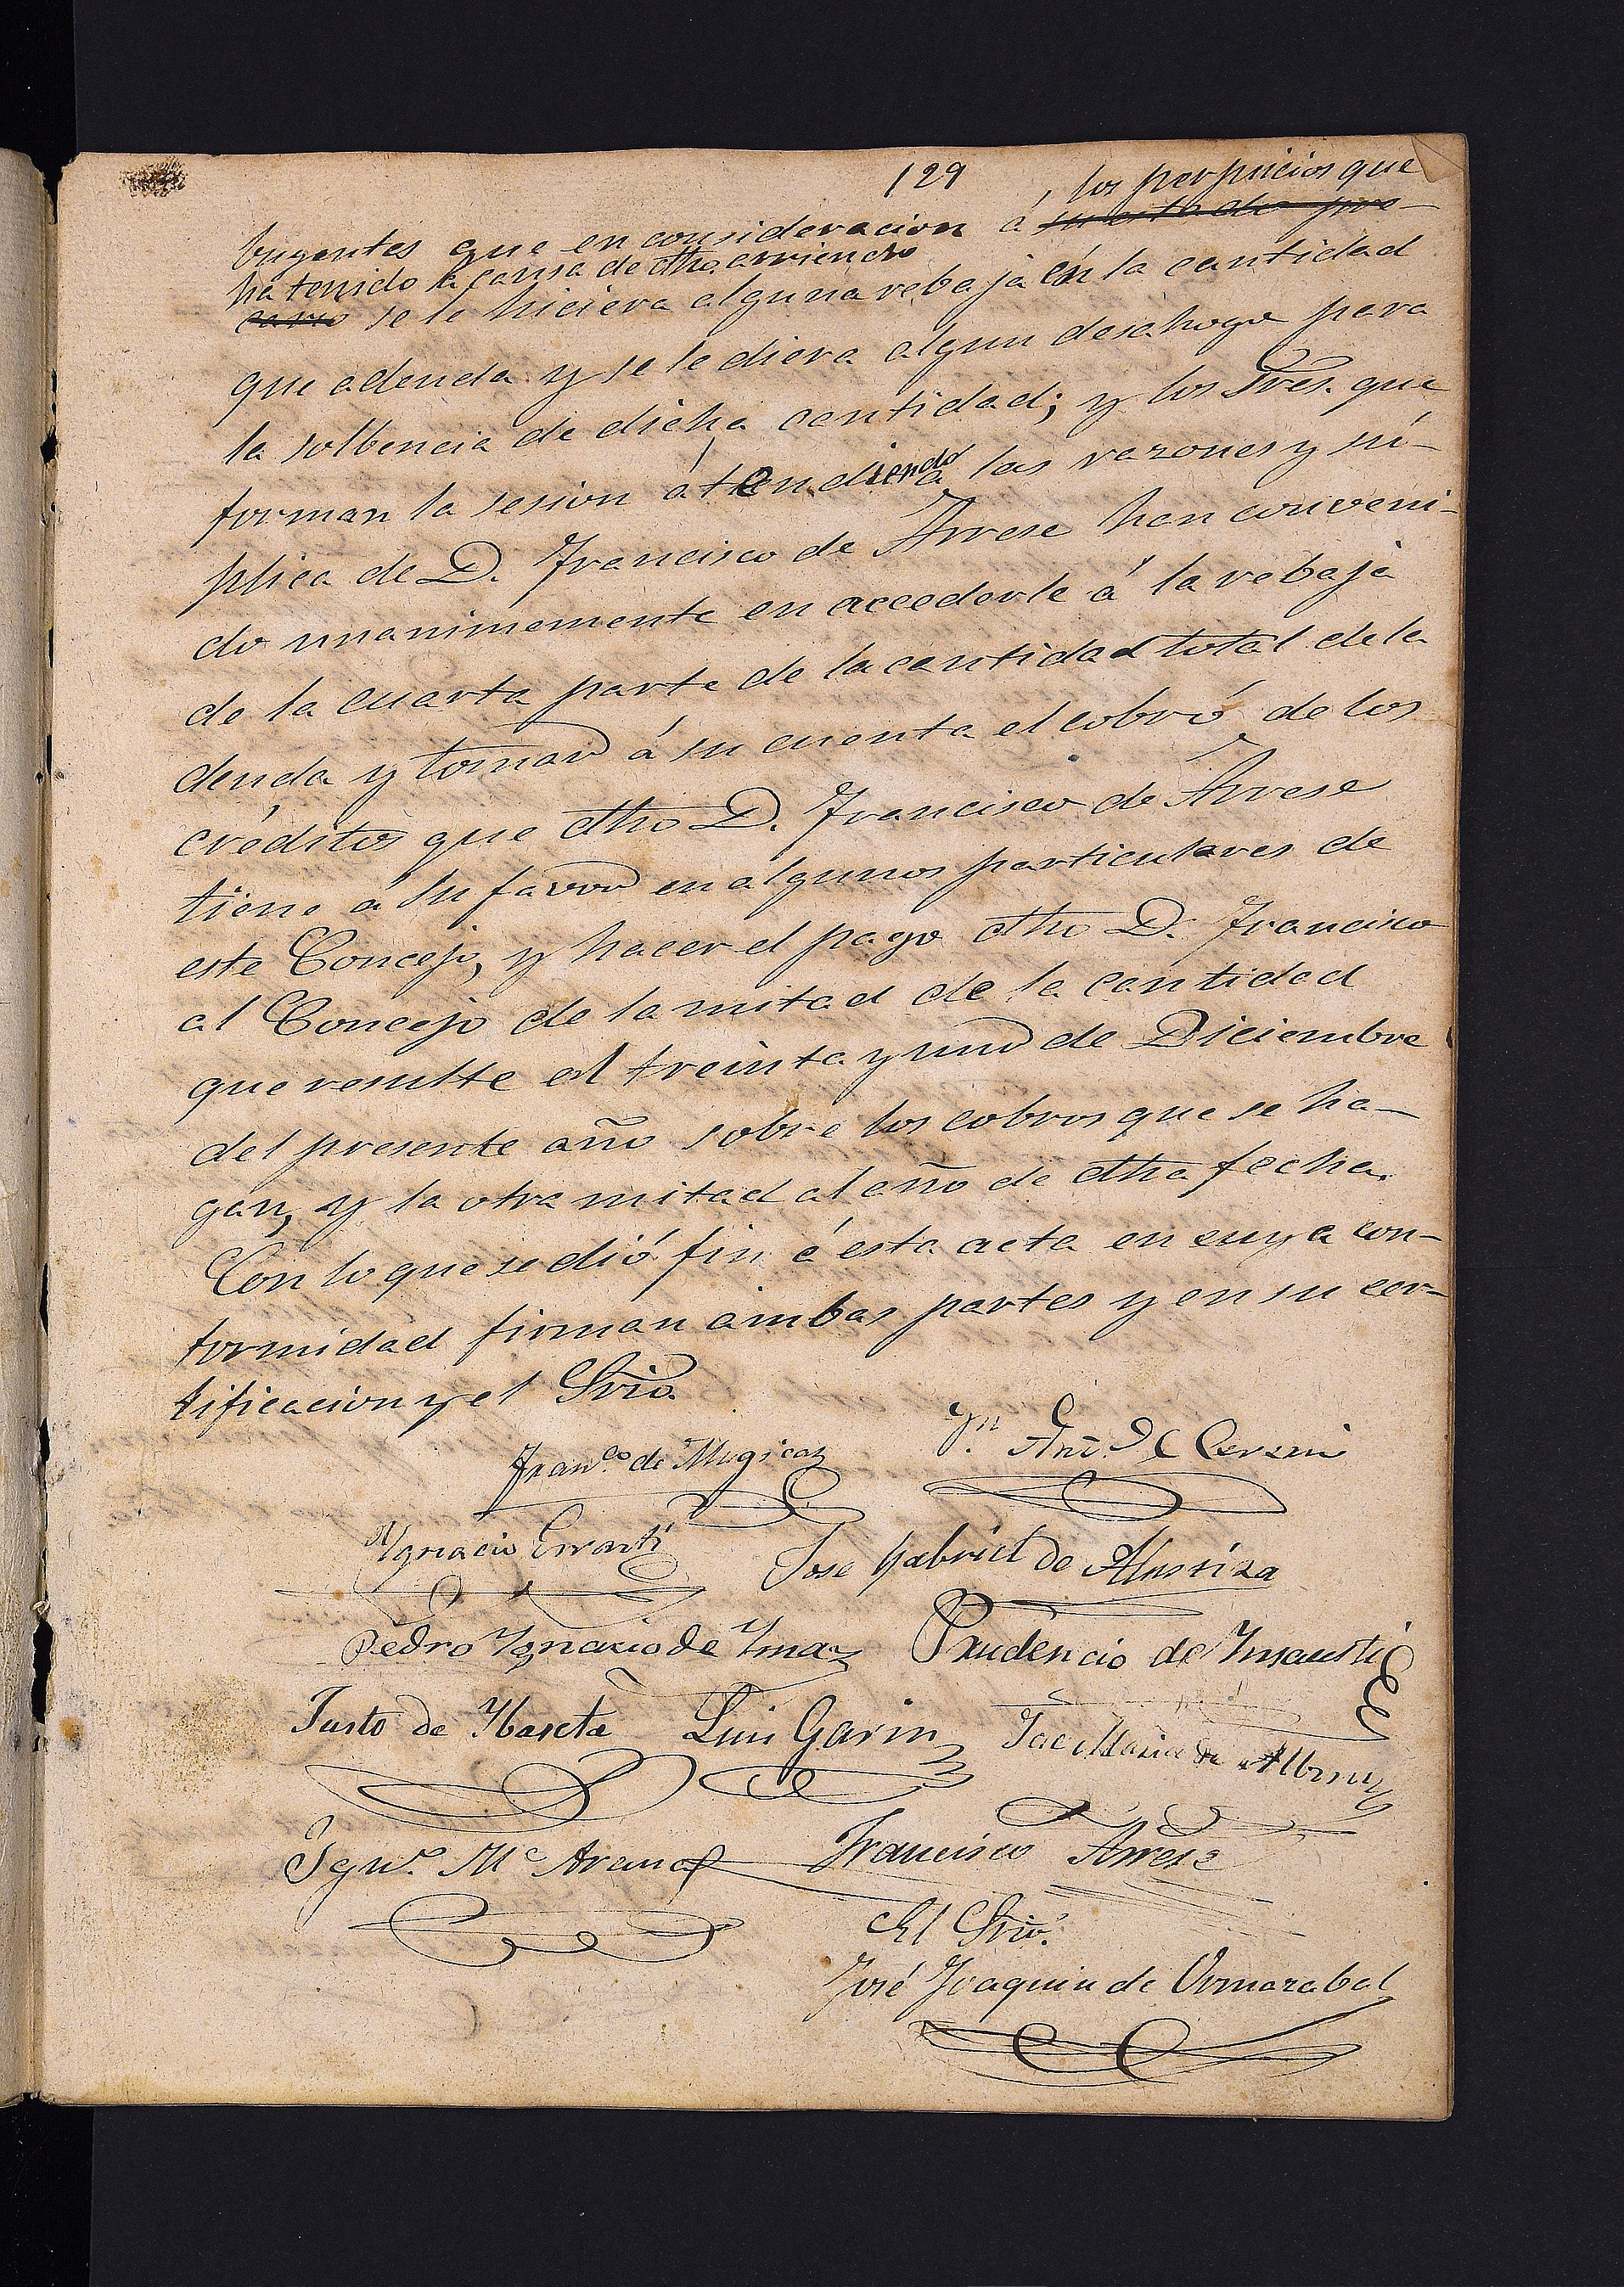 129
los perjuicios que
buyentes que en consideracion á su estado pre-
ha tenido á causa de dho arriendo
cario se le hiciera alguna rebaja en la cantidad
que adeuda y se le diera algun desahogo para
la solbencia de dicha cantidad; y los Sres. que
forman la sesion atendiendo á las razones y sú-
plica de D. Francisco de Arrese han conveni-
do unanimemente en accederle á la rebaja
de la cuarta parte de la cantidad total de la
deuda y tomar á su cuenta el cobro de los
créditos que dho D. Francisco de Arrese
tiene á su favor en algunos particulares de
este Concejo, y hacer el pago dho D. Francisco
al Concejo de la mitad de la cantidad
que resulte el treinta y uno de Diciembre
del presente año sobre los cobros que se ha-
gan, y la otra mitad al año de dha fecha.
Con lo que se dió fin á esta acta en cuya con-
formidad firman ambas partes y en su cer-
tificacion y el Srio.
Franco. de Mugica
Jn Ant. de
Ygnacio Errasti
Jose Gabriel de Alustiza
Pedro Ygnacio de Ymaz
Prudencio de Ynsausti
Justo de Ybareta
Luis Garin
José Maria de
Ygno. Ma Arana
Francisco Arrese
El Srio.
José Joaquin de Ormazabal